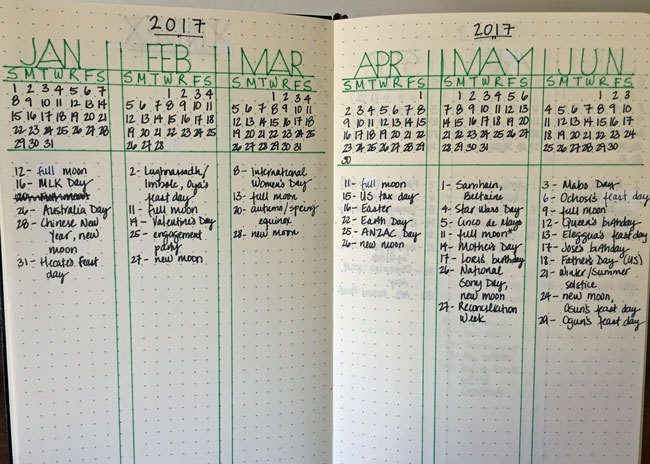 2017
JAN
S M T W R F S
1 2 3 4 5 6 7
8 9 10 11 12 13 14
15 16 17 18 19 20 21
22 23 24 25 26 27 28
29 30 31
12- full moon
16- MLK Day
26- Australia Day
28- Chinese New
Year, new
moon
31- Hecate's feast
day
FEB
S M T W R F S
1 2 3 4
5 6 7 8 9 10 11
12 13 14 15 16 17 18
19 20 21 22 23 24 25
26 27 28
2- Lughnassadh/
Imbolc, Oya's
feast day
11- full moon
14- Valentine's Day
25- engagement
party
27- new moon
MAR
S M T W R F S
1 2 3 4
5 6 7 8 9 10 11
12 13 14 15 16 17 18
19 20 21 22 23 24 25
26 27 28 29 30 31
8- International
Women's Day
13- full moon
20- autumn/spring
equinox
28- new moon
2017
APR
S M T W R F S
1
2 3 4 5 6 7 8
9 10 11 12 13 14 15
16 17 18 19 20 21 22
23 24 25 26 27 28 29
30
11- full moon
15- US tax day
16- Easter
22- Earth Day
25- ANZAC Day
26- new moon
MAY
S M T W R F S
1 2 3 4 5 6
7 8 9 10 11 12 13
14 15 16 17 18 19 20
21 22 23 24 25 26 27
28 29 30 31
1- Samhain,
Beltaine
4- Star Wars Day
5- Cinco de Mayo
11- full moon*
14- Mother's Day
17- Lori's birthday
26- National
Sorry Day,
new moon
27- Reconciliation
Week
JUN
S M T W R F S
1 2 3
4 5 6 7 8 9 10
11 12 13 14 15 16 17
18 19 20 21 22 23 24
25 26 27 28 29 30
3- Mabo Day
6- Ochosi's feast day
9- full moon
12- Queen's birthday
13- Eleggua's feast day
17- Jose's birthday
18- Father's Day (US)
21- Winter/Summer
solstice
24- new moon,
Osun's feast day
29- Ogun's feast day